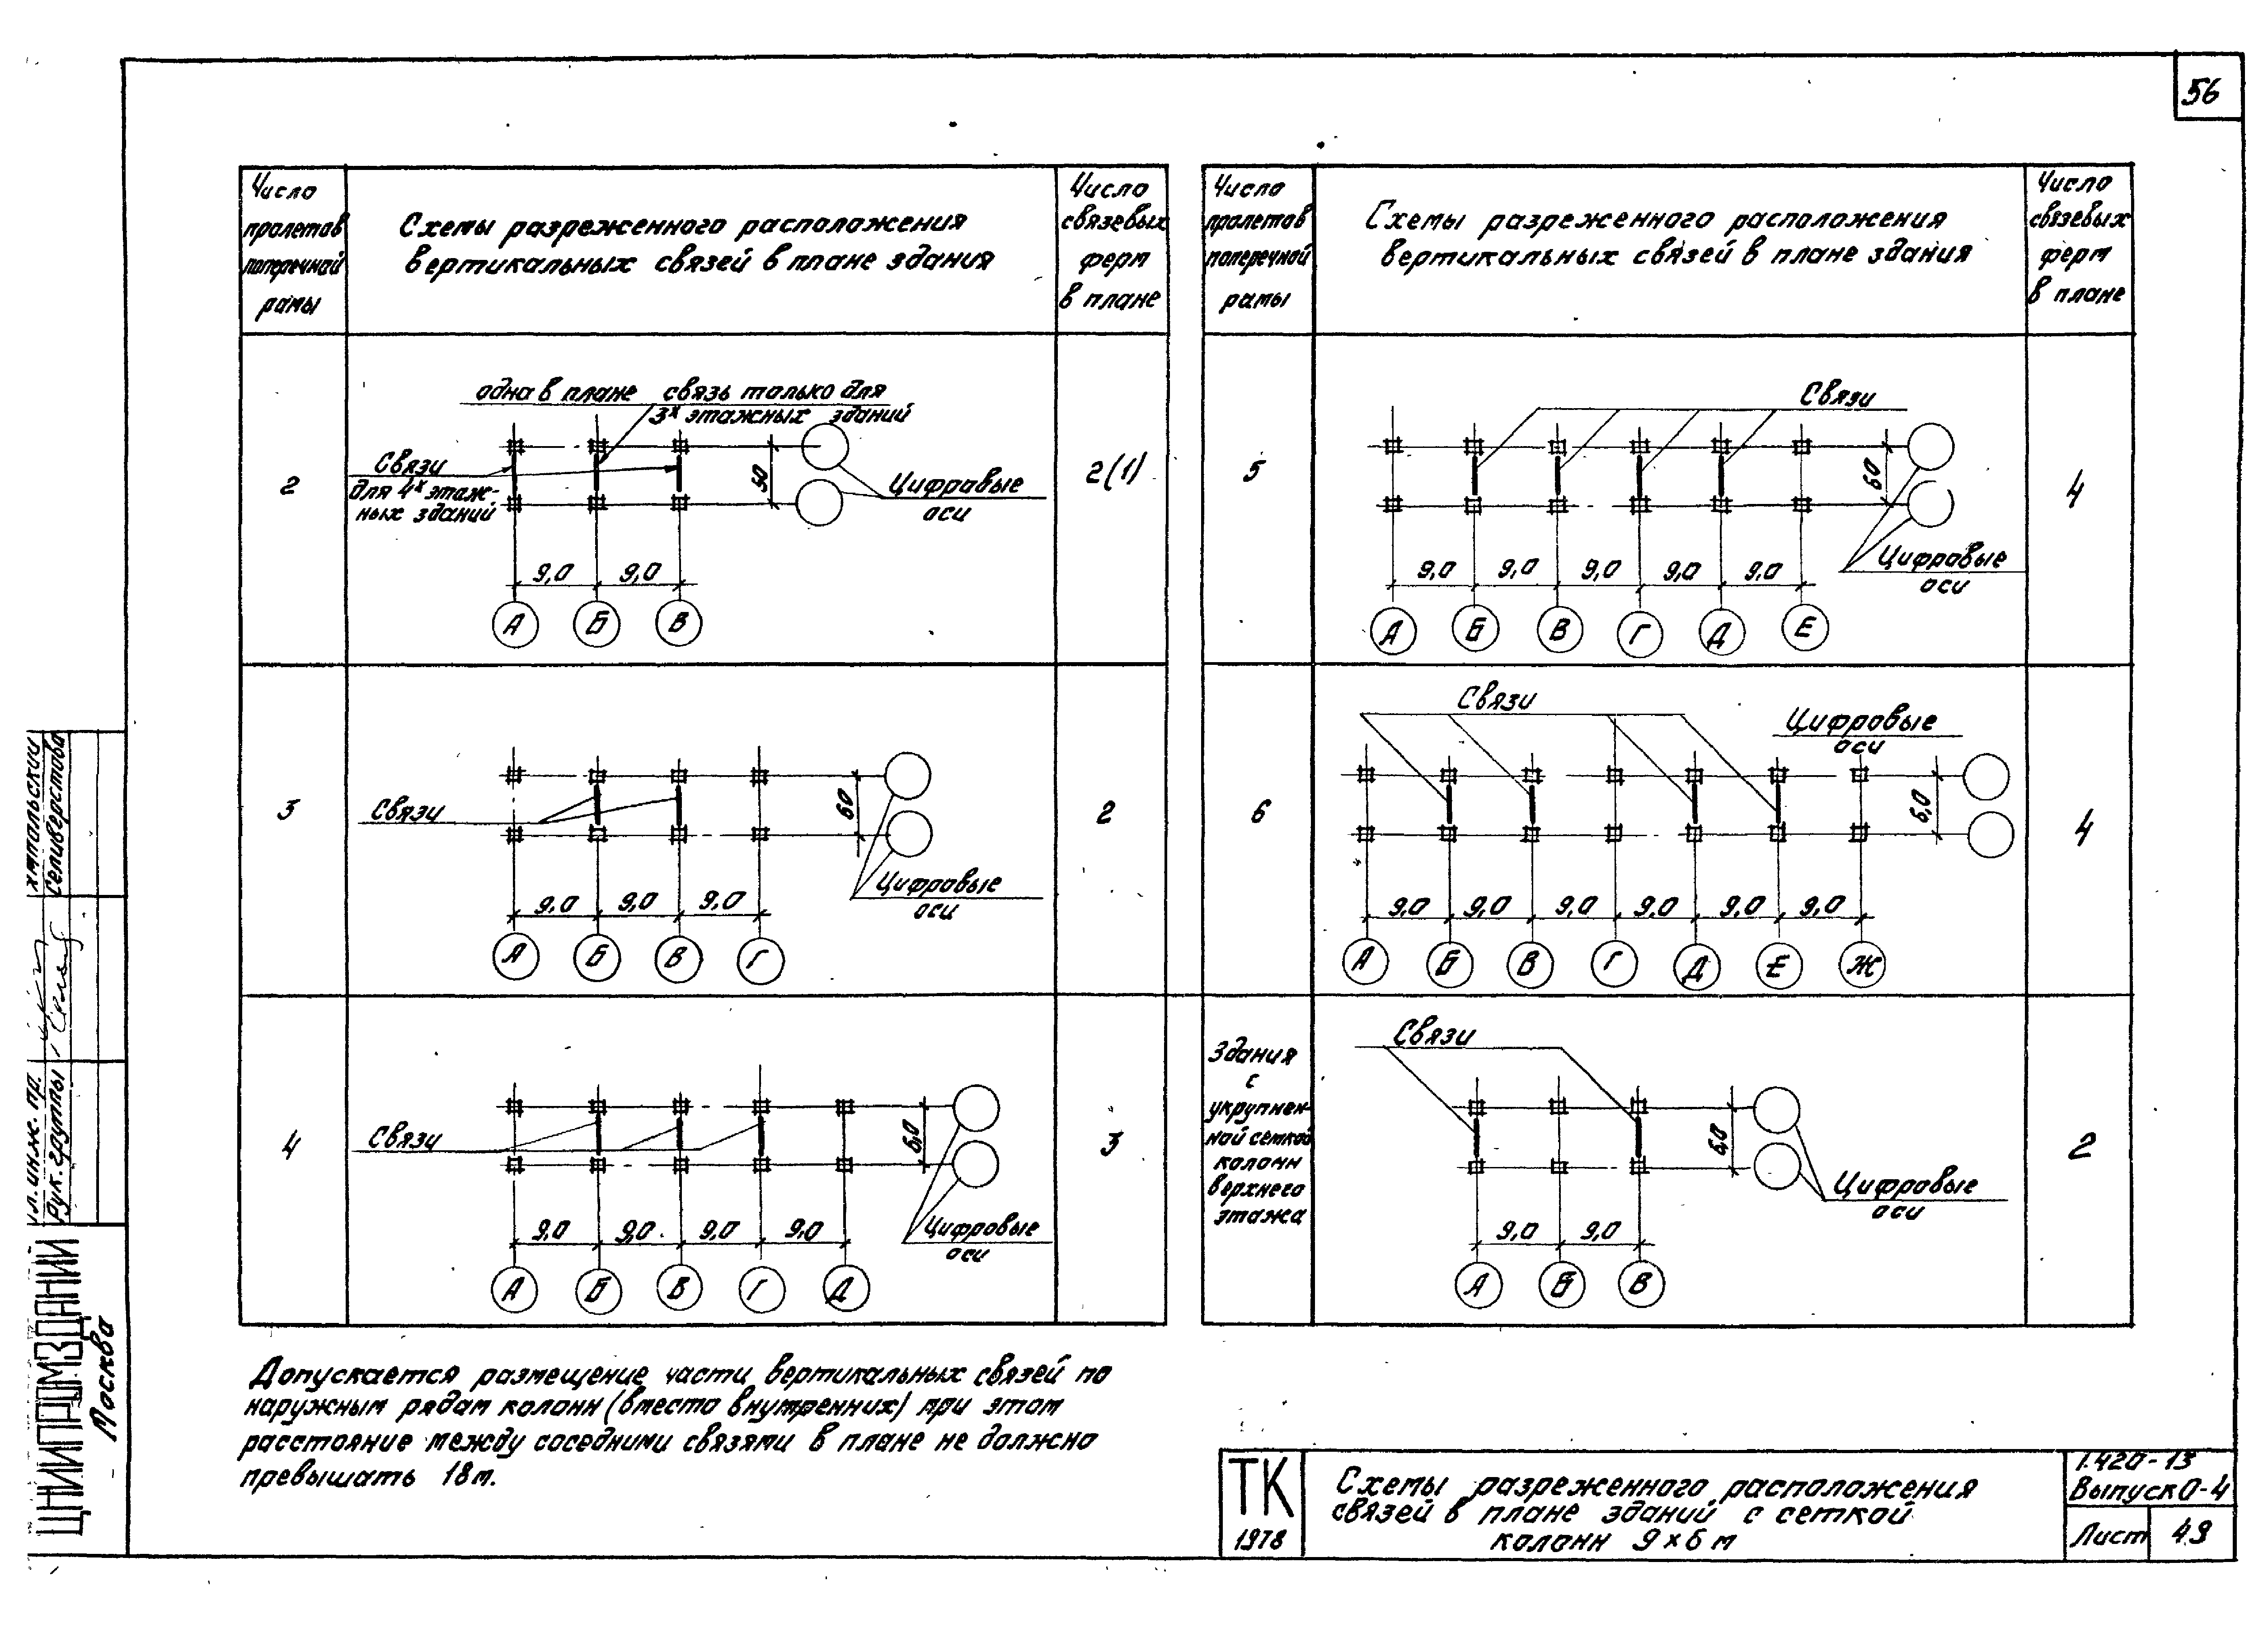 56
Число
пролетов
поперечной
рамы
Схемы разреженного расположения
вертикальных связей в плане здания
Число
связевых
ферм
в плане
2
одна в плане связь только для
3х этажных зданий
Связи
для 4х этаж-
ных зданий
Цифровые
оси
9,0 9,0
А Б В
2(1)
3
Связи
60
Цифровые
оси
9,0 9,0 9,0
А Б В Г
2
4
Связи
6,0
Цифровые
оси
9,0 9,0 9,0 9,0
А Б В Г Д
3
Число
пролетов
поперечной
рамы
Схемы разреженного расположения
вертикальных связей в плане здания
Число
связевых
ферм
в плане
5
Связи
60
Цифровые
оси
9,0 9,0 9,0 9,0 9,0
А Б В Г Д Е
4
6
Связи
Цифровые
оси
6,0
9,0 9,0 9,0 9,0 9,0 9,0
А Б В Г Д Е Ж
4
Здания
с
укрупнен-
ной сеткой
колонн
верхнего
этажа
Связи
6,0
Цифровые
оси
9,0 9,0
А Б В
2
Допускается размещение части вертикальных связей по
наружным рядам колонн (вместо внутренних) при этом
расстояние между соседними связями в плане не должно
превышать 18м.
ТК
1978
Схемы разреженного расположения
связей в плане зданий с сеткой
колонн 9×6 м
1.420-13
Выпуск 0-4
Лист 49
Гл. инж. пр.
Рук. группы Селиверстова
ЦНИИПРОМЗДАНИЙ
Москва